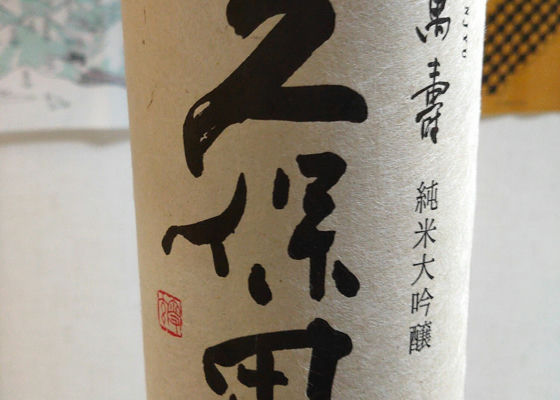 萬壽
純米大吟醸
久保田